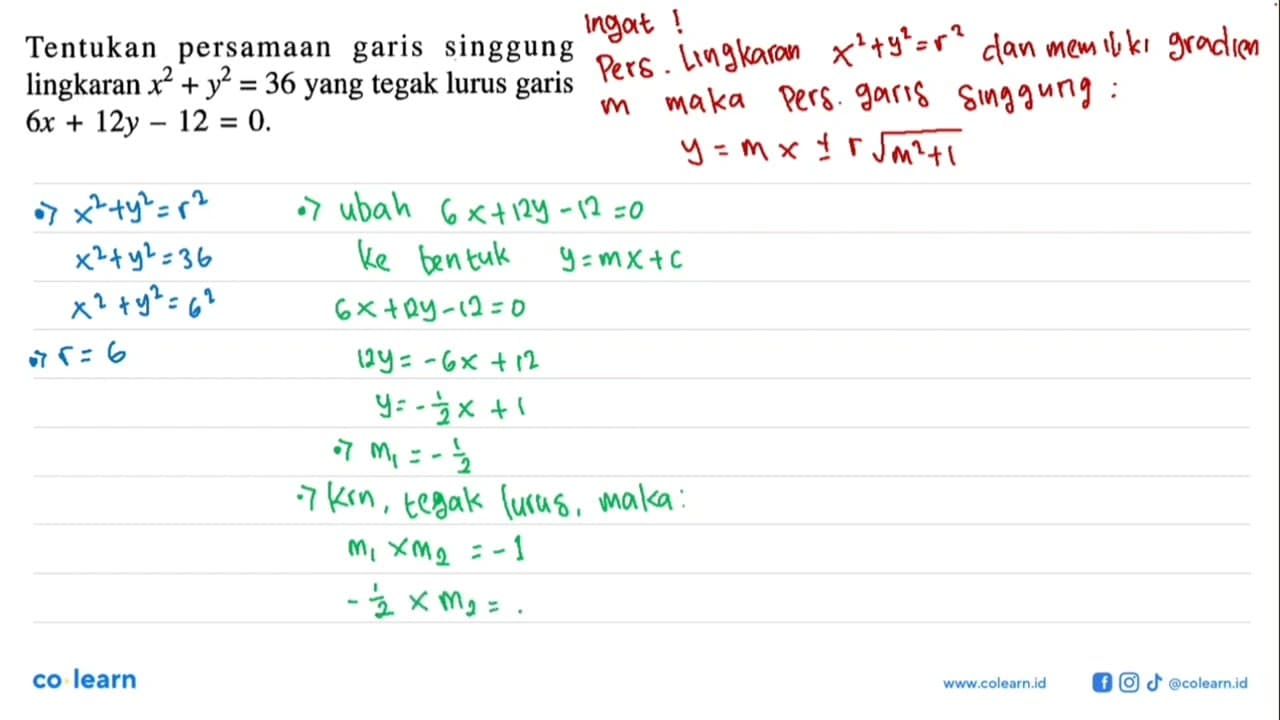 Tentukan persamaan garis singgung
lingkaran x² + y² = 36 yang tegak lurus garis
6x + 12y – 12 = 0.
Ingat !
Pers. Lingkaran x²+y²=r² dan memiliki gradien
m maka Pers. garis singgung :
y = m x ± r √m²+1
•⇒ x²+y²=r²
x²+y²=36
x²+y²=6²
•⇒ r = 6
•⇒ ubah 6x+12y-12=0
ke bentuk y=mx+c
6x+12y-12=0
12y=-6x+12
y=-½x+1
•⇒ m₁=-½
•⇒ krn, tegak lurus, maka:
m₁ × m₂ = -1
-½ × m₂ = .
co learn
www.colearn.id
@colearn.id